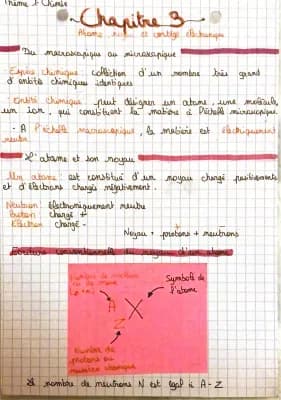 Thème 1: Chimie
Chapitre 3
Atome, noyau et cortège électronique
Du macroscopique au microscopique
Espèce chimique: collection d'un nombre très grand
d'entités chimiques identiques
Entité chimique: peut désigner un atome, une molécule,
un ion, qui constituent la matière à l'échelle microscopique.
- A l'échelle macroscopique, la matière est électriquement
neutre.
L'atome et son noyau
Un atome: est constitué d'un noyau chargé positivement
et d'électrons chargés négativement.
Neutron: électroniquement neutre
Proton: chargé +
Electron: chargé -
Noyau = protons + neutrons
Ecriture conventionnelle du noyau d'un atome
Symbole de
l'atome
A
X
Z
Nombre de
protons ou
numéro atomique
nombre de neutrons N est égal à A - Z